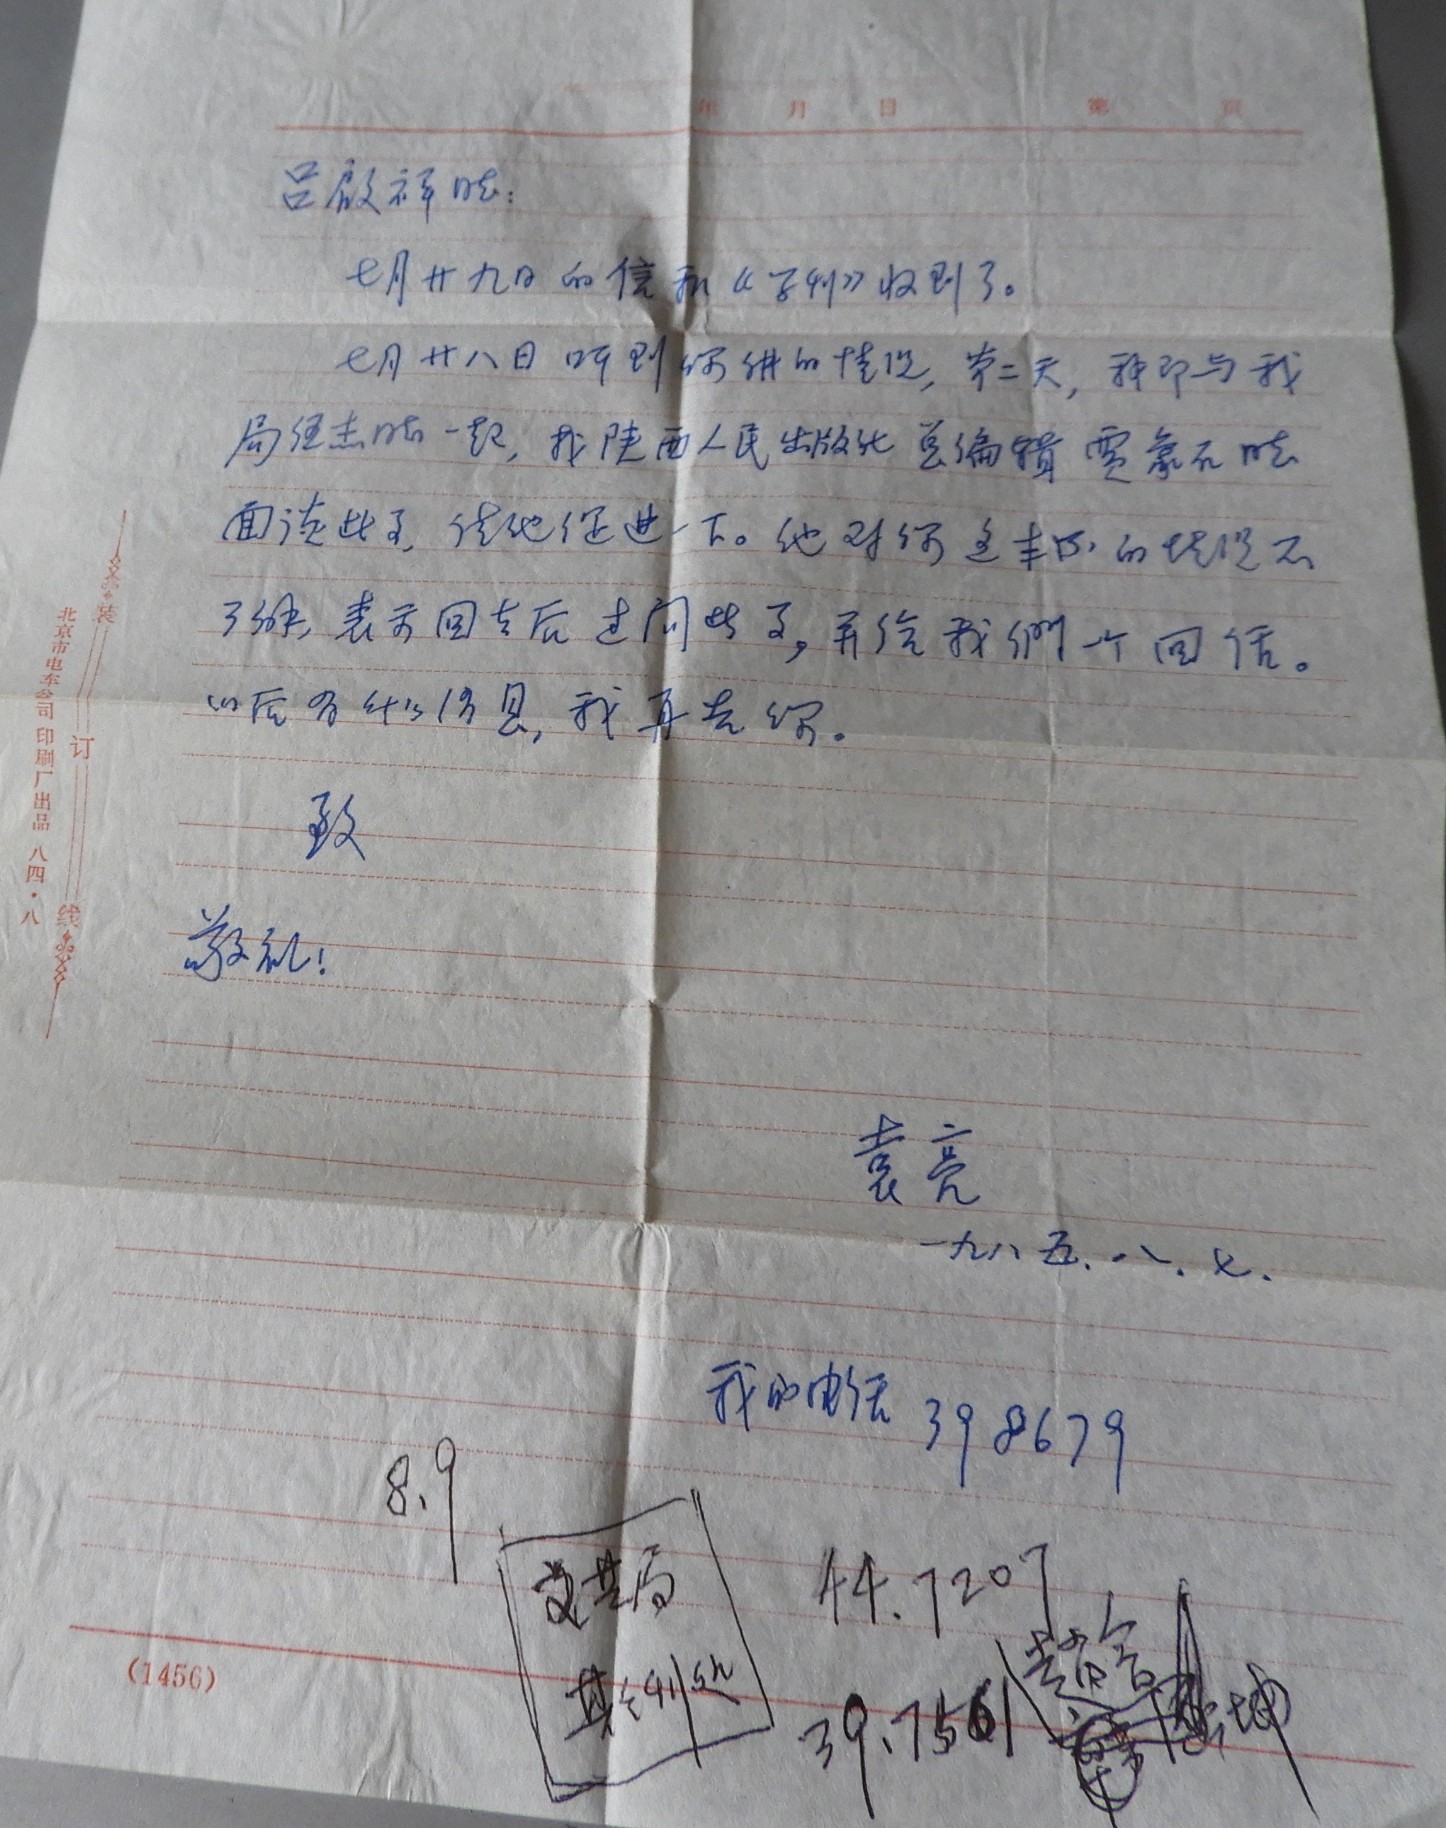 年 月 日 第 页
吕启祥同志：
七月廿九日的信和《学刊》收到了。
七月廿八日听到你讲的情况，第二天，我即与我
局任杰同志一起，找陕西人民出版社总编辑贾象石同志
面谈此事，请他促进一下。他对你这本书的情况不
了解，表示回去后过问此事，并给我们一个回信。
以后有什么消息，我再告你。
致
敬礼！
袁亮
一九八五.八.七.
我的电话 398679
8.9
44.7207
39.7561
处
(1456)
装订线
北京市电车公司印刷厂出品 八四·八